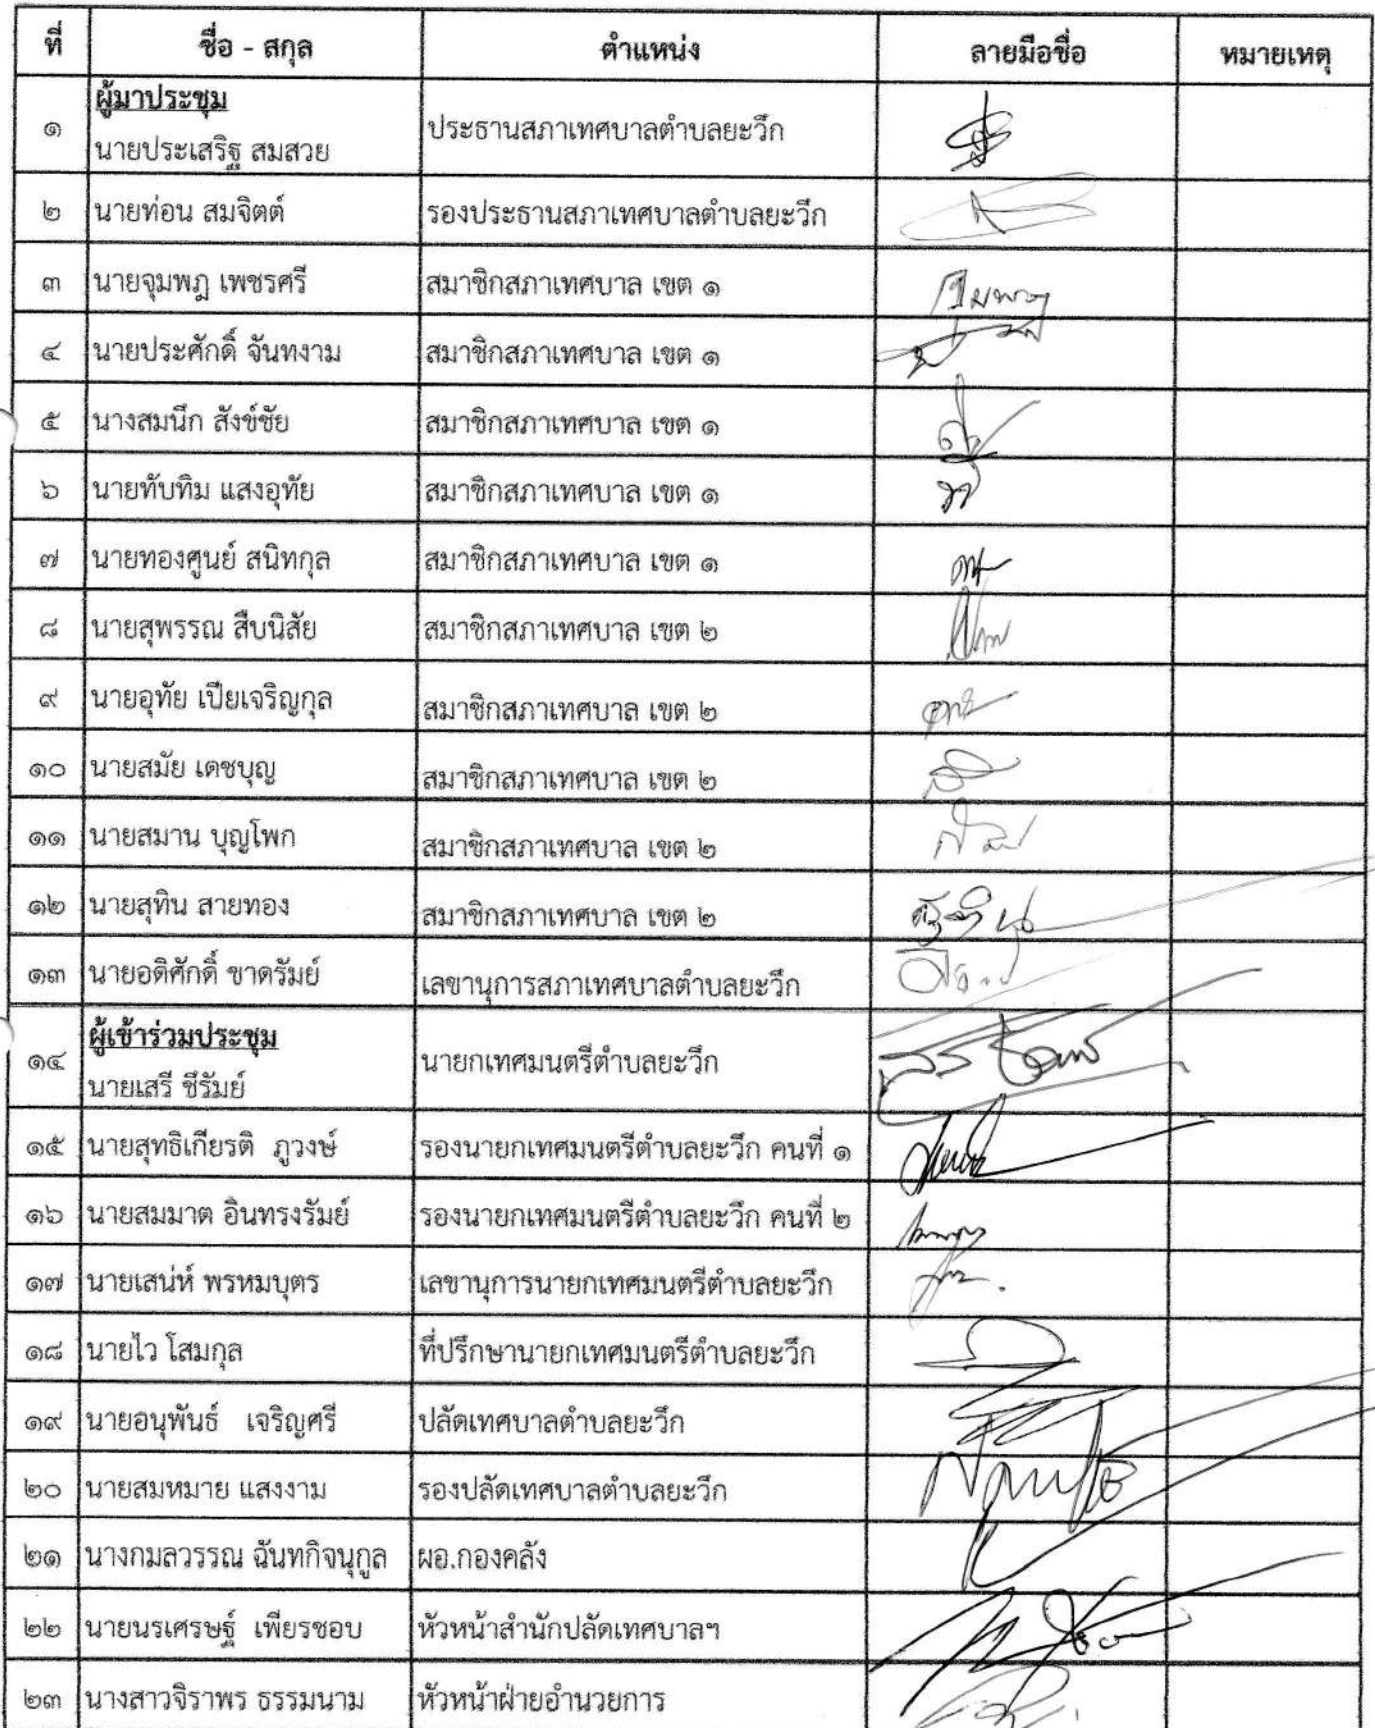 ที่ ชื่อ - สกุล ตำแหน่ง ลายมือชื่อ หมายเหตุ
ผู้มาประชุม
๑ นายประเสริฐ สมสวย ประธานสภาเทศบาลตำบลยะวึก
๒ นายท่อน สมจิตต์ รองประธานสภาเทศบาลตำบลยะวึก
๓ นายจุมพฎ เพชรศรี สมาชิกสภาเทศบาล เขต ๑
๔ นายประศักดิ์ จันทงาม สมาชิกสภาเทศบาล เขต ๑
๕ นางสมนึก สังข์ชัย สมาชิกสภาเทศบาล เขต ๑
๖ นายทับทิม แสงอุทัย สมาชิกสภาเทศบาล เขต ๑
๗ นายทองศูนย์ สนิทกุล สมาชิกสภาเทศบาล เขต ๑
๘ นายสุพรรณ สืบนิสัย สมาชิกสภาเทศบาล เขต ๒
๙ นายอุทัย เปียเจริญกุล สมาชิกสภาเทศบาล เขต ๒
๑๐ นายสมัย เดชบุญ สมาชิกสภาเทศบาล เขต ๒
๑๑ นายสมาน บุญโพก สมาชิกสภาเทศบาล เขต ๒
๑๒ นายสุทิน สายทอง สมาชิกสภาเทศบาล เขต ๒
๑๓ นายอดิศักดิ์ ชาดรัมย์ เลขานุการสภาเทศบาลตำบลยะวึก
ผู้เข้าร่วมประชุม
๑๔ นายเสรี ชีรัมย์ นายกเทศมนตรีตำบลยะวึก
๑๕ นายสุทธิเกียรติ ภูวงษ์ รองนายกเทศมนตรีตำบลยะวึก คนที่ ๑
๑๖ นายสมมาต อินทรงรัมย์ รองนายกเทศมนตรีตำบลยะวึก คนที่ ๒
๑๗ นายเสน่ห์ พรหมบุตร เลขานุการนายกเทศมนตรีตำบลยะวึก
๑๘ นายไว โสมกุล ที่ปรึกษานายกเทศมนตรีตำบลยะวึก
๑๙ นายอนุพันธ์ เจริญศรี ปลัดเทศบาลตำบลยะวึก
๒๐ นายสมหมาย แสงงาม รองปลัดเทศบาลตำบลยะวึก
๒๑ นางกมลวรรณ ฉันทกิจนุกูล ผอ.กองคลัง
๒๒ นายนรเศรษฐ์ เพียรชอบ หัวหน้าสำนักปลัดเทศบาลฯ
๒๓ นางสาวจิราพร ธรรมนาม หัวหน้าฝ่ายอำนวยการ